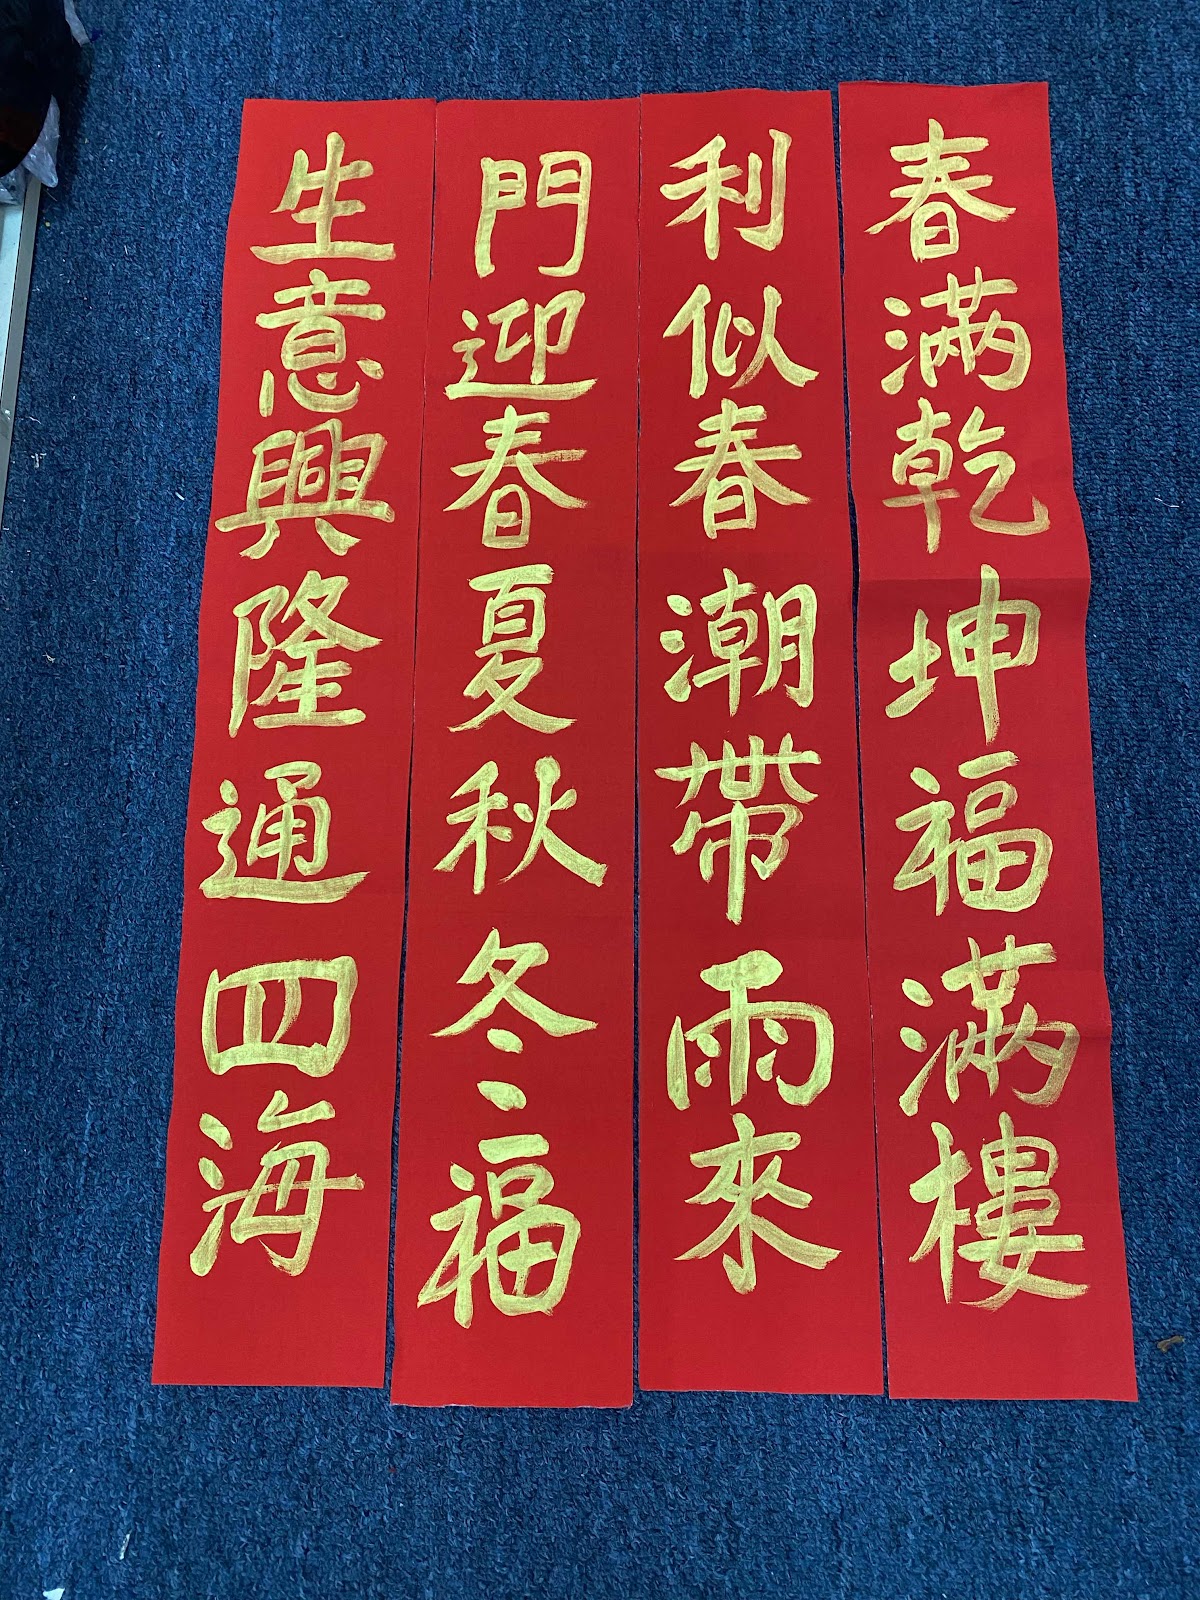 春滿乾坤福滿樓
利似春潮帶雨來
門迎春夏秋冬福
生意興隆通四海